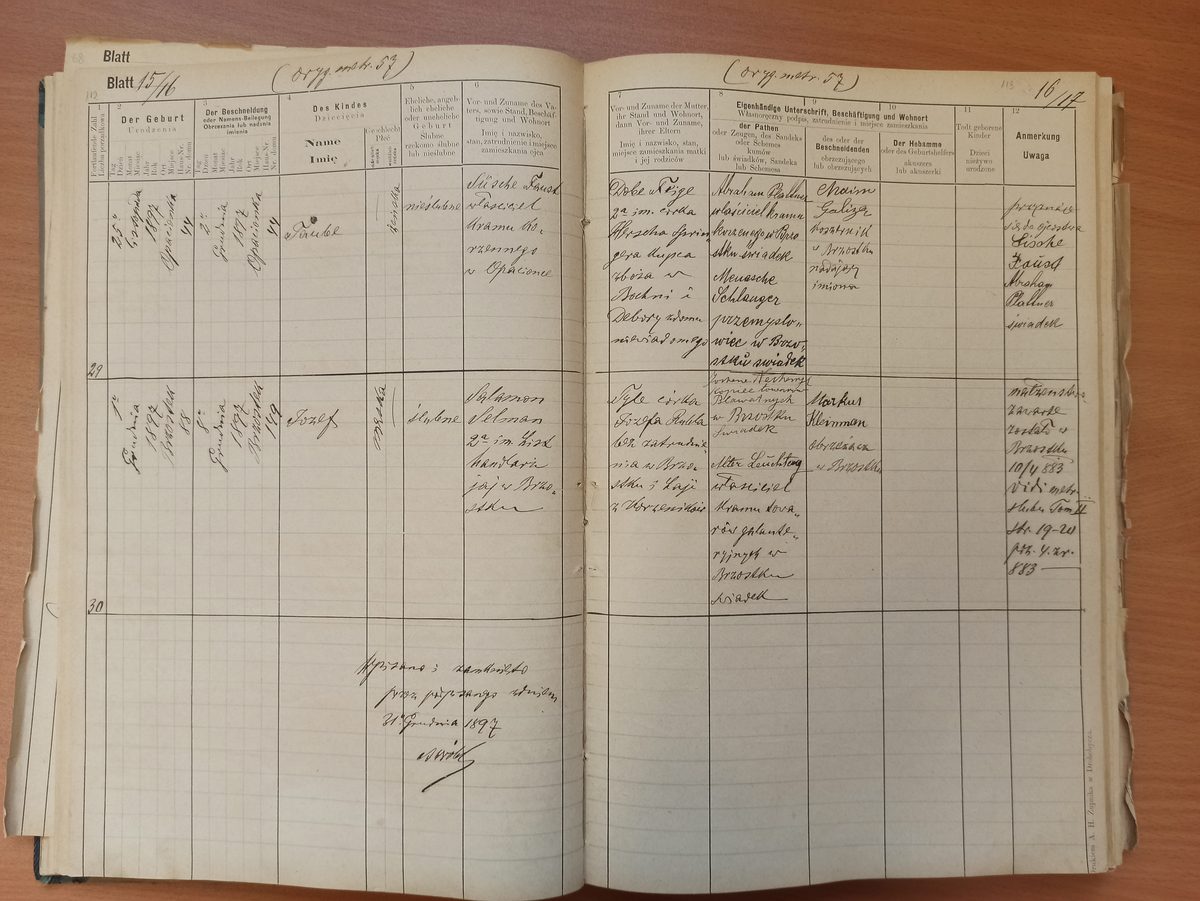 Blatt
Blatt 15/16
(oryg. metr. 57)
1
Fortlaufende Zahl
Liczba porządkowa
2
Der Geburt
Urodzenia
Tag
Dzień
Monat
Miesiąc
Jahr
Rok
Ort
Miejsce
Haus-Nr.
Nr. domu
3
Der Beschneidung
oder Namens-Beilegung
Obrzezania lub nadania
imienia
Tag
Dzień
Monat
Miesiąc
Jahr
Rok
Ort
Miejsce
Haus-Nr.
Nr. domu
4
Des Kindes
Dziecięcia
Name
Imię
Geschlecht
Płeć
5
Eheliche, angeb-
lich eheliche
oder uneheliche
Geburt
Ślubne
rzekomo ślubne
lub nieślubne
6
Vor- und Zuname des Va-
ters, sowie Stand, Beschäf-
tigung und Wohnort
Imię i nazwisko,
stan, zatrudnienie i miejsce
zamieszkania ojca
29
25go
Listopada
1897
Opacionka
44
2go
Grudnia
1897
Opacionka
44
Taube
żeńska
nieślubne
Süsche Faust
właściciel
kramu ko-
rzennego
w Opacionce
30
1go
Grudnia
1897
Brzostek
88
8go
Grudnia
1897
Brzostek
149
Józef
męska
ślubne
Salamon
Selman
2ga im. List
handlarz
jaj w Brzo-
stku
Wpisano i zamknięto
przez podpisanego z dniem
31go Grudnia 1897
(oryg. metr. 57)
113
16/17
7
Vor- und Zuname der Mutter,
ihr Stand und Wohnort,
dann Vor- und Zuname,
ihrer Eltern
Imię i nazwisko, stan,
miejsce zamieszkania matki
i jej rodziców
Eigenhändige Unterschrift, Beschäftigung und Wohnort
Własnoręczny podpis, zatrudnienie i miejsce zamieszkania
8
der Pathen
oder Zeugen, des Sandeks
oder Schemes
kumów
lub świadków, Sandeka
lub Schemosa
9
des oder der
Beschneidenden
obrzezującego
lub obrzezujących
10
Der Hebamme
oder des Geburtshelfers
akuszera
lub akuszerki
11
Todt geborene
Kinder
Dzieci
nieżywo
urodzone
12
Anmerkung
Uwaga
Dobe a Feige
2ga im. córka
Herscha Sprin-
gera kupca
zboża w
Bochni i
Debory z domu
niewiadomego
Abraham Plattner
właściciel kramu
korzennego w Brzo
stku świadek
Menasche
Schlanger
przemysło-
wiec w Brzo-
stku świadek
Chaim
Galiza
w Brzostku
nadający
imiona
przyznaje
się do ojcostwa
Süsche
Faust
Abraham
Plattner
świadek
Tyle córka
Józefa
bez zatrudnie
nia w Brzo-
stku i Łaji
bławatnych
w Brzostku
świadek
Alter Leuchtag
właściciel
kramu towa-
rów galante-
ryjnych w
Brzostku
świadek
Markus
Kleinman
obrzezacz
w Brzostku
małżeństwo
zawarte
zostało w
Brzostku
10/4 883
Vidi metr.
ślubu Tom II
str. 19-20
poz. 4. zr.
883
Drukiem A. H. Żupnika w Drohobyczu.